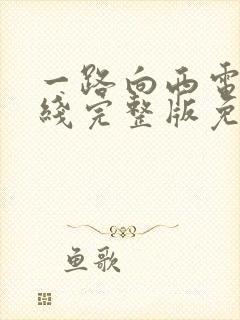 一路向西電
綫完整版免
鱼歌